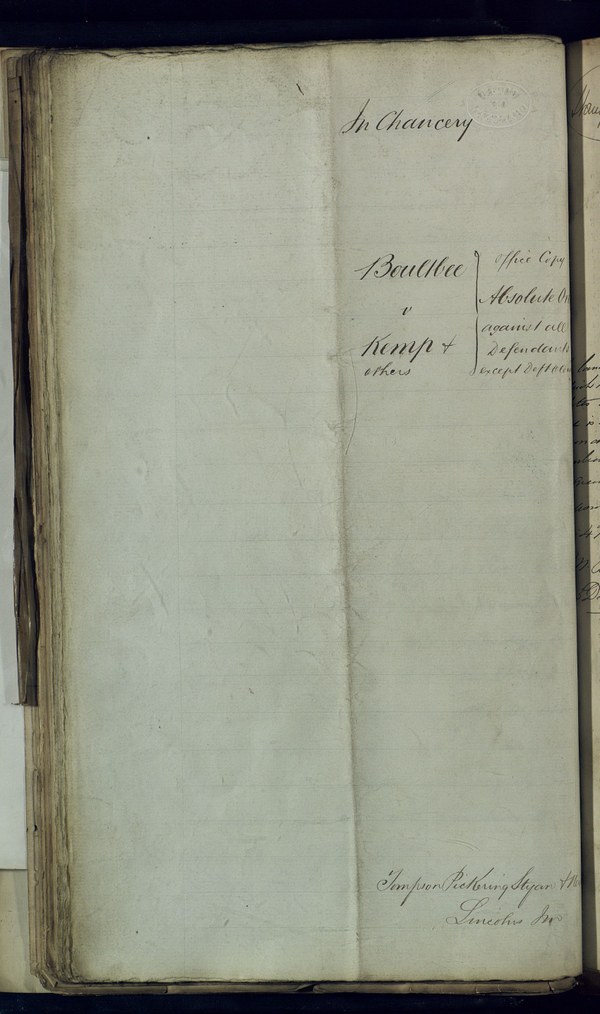 In Chancery
Boultbee
v
Kemp &
others
Office Copy
Absolute
against all
Defendants
except Deft
Tompson Pickering Styan &
Lincolns Inn